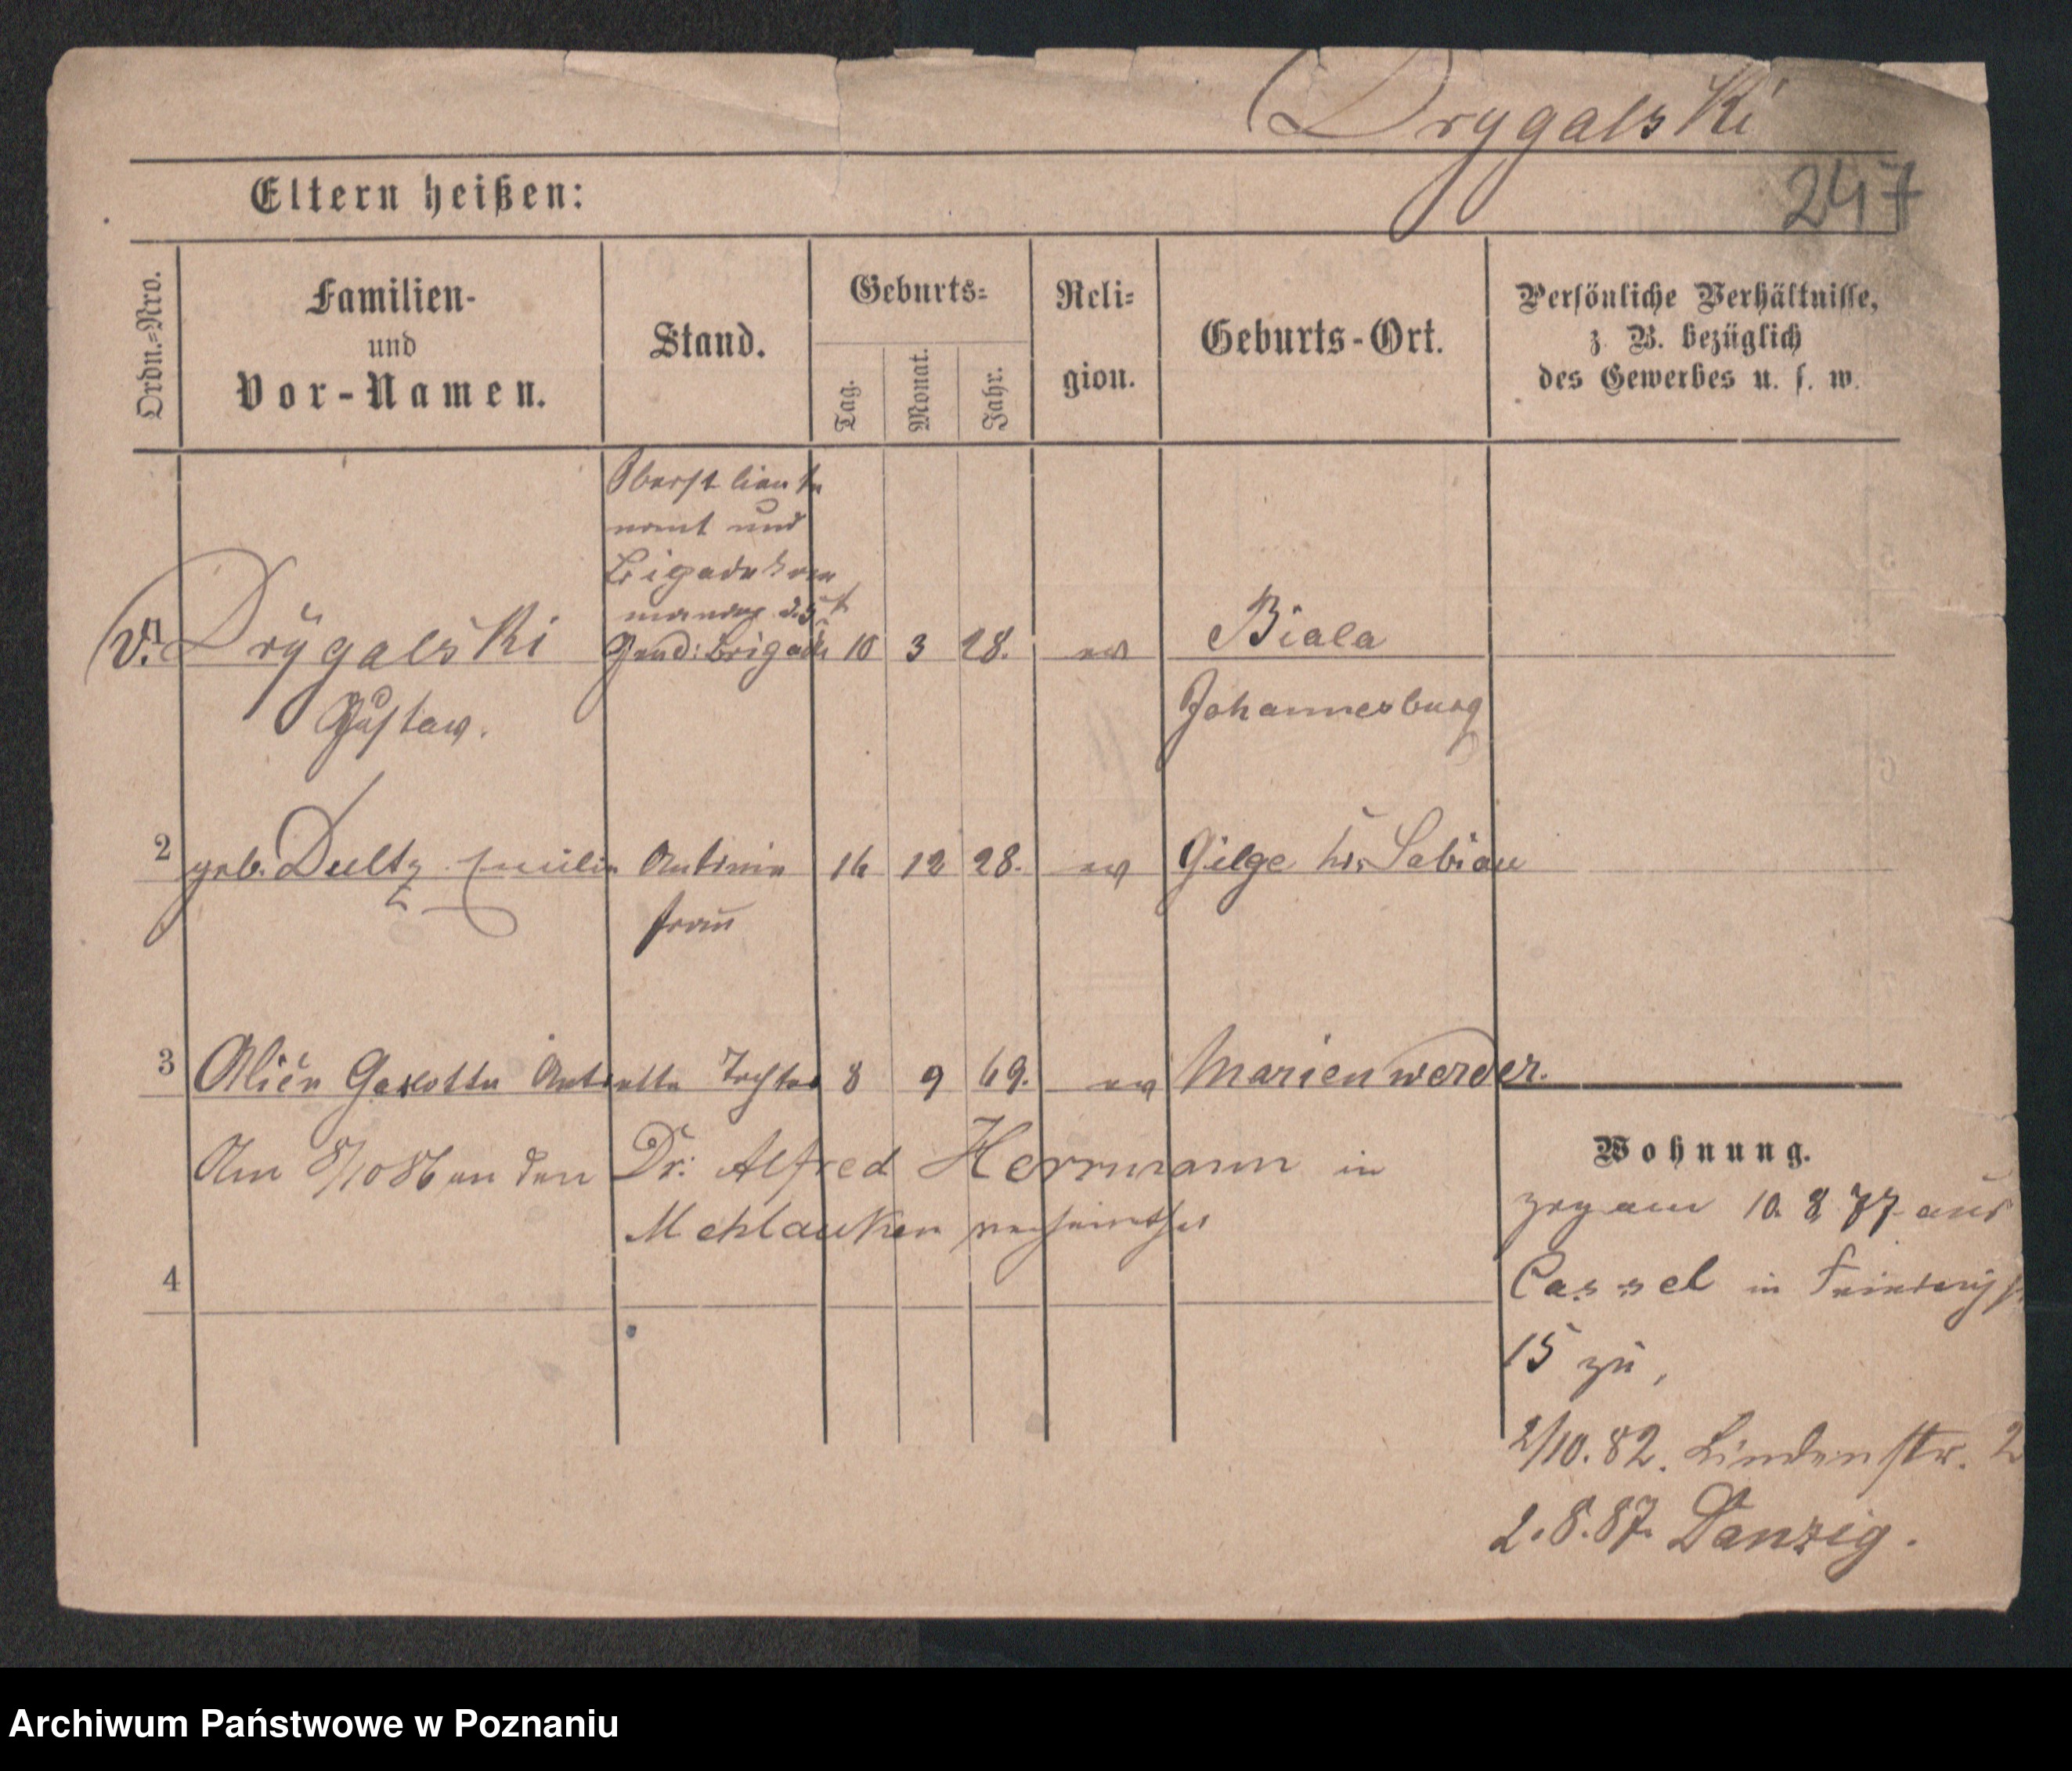 Drygalski
247
Eltern heißen:
Ordn.-Nro.
Familien-
und
Vor-Namen.
Stand.
Geburts-
Tag.
Monat.
Jahr.
Reli-
gion.
Geburts-Ort.
Persönliche Verhältnisse,
z. B. bezüglich
des Gewerbes u. s. w.
Oberstlieute
nant und
Brigadekom
mandeur d. 5t
v. Drygalski Gend: Brigade 10 3 28. ev Biala
Gustav. Johannesburg
2 geb. Dultz Emilie Antonie 16 12 28. ev Gilge Kr. Labiau
frau
3 Tochter 8 9 69. ev Marienwerder.
Am 8/10 86 an den Dr. Alfred Herrmann in
Mehlauken verheirathet
4
Wohnung.
zog am 10. 8 77 aus
Cassel in
15 zu,
2/10. 82. Lindenstr. 2
2. 8. 87. Danzig.
Archiwum Państwowe w Poznaniu